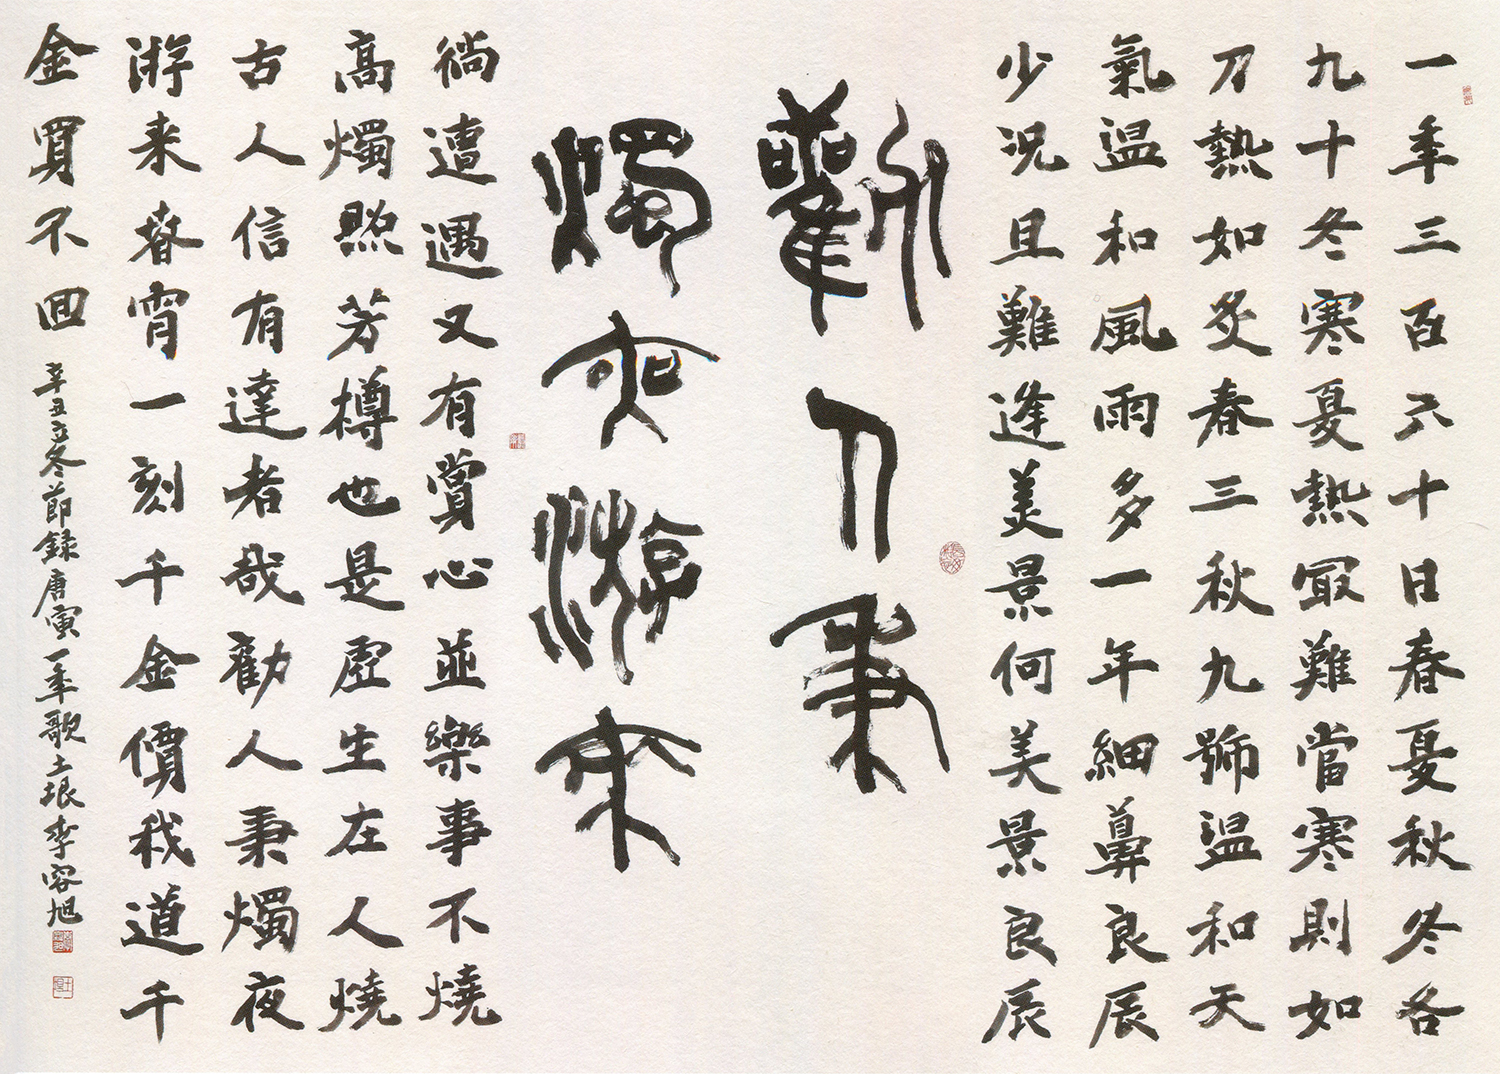 一秊三百六十日春夏秋冬各
九十冬寒夏熱最難當寒則如
刀熱如炙春三秋九號溫和天
氣溫和風雨多一年細算良辰
少況且難逢美景何美景良辰
勸人秉
燭夜游來
徜遭遇又有賞心並樂事不燒
高燭照芳樽也是虛生在人燒
古人信有達者哉勸人秉燭夜
游来春宵一刻千金價我道千
金買不回
辛丑立冬節録唐寅一秊歌土垠李容旭